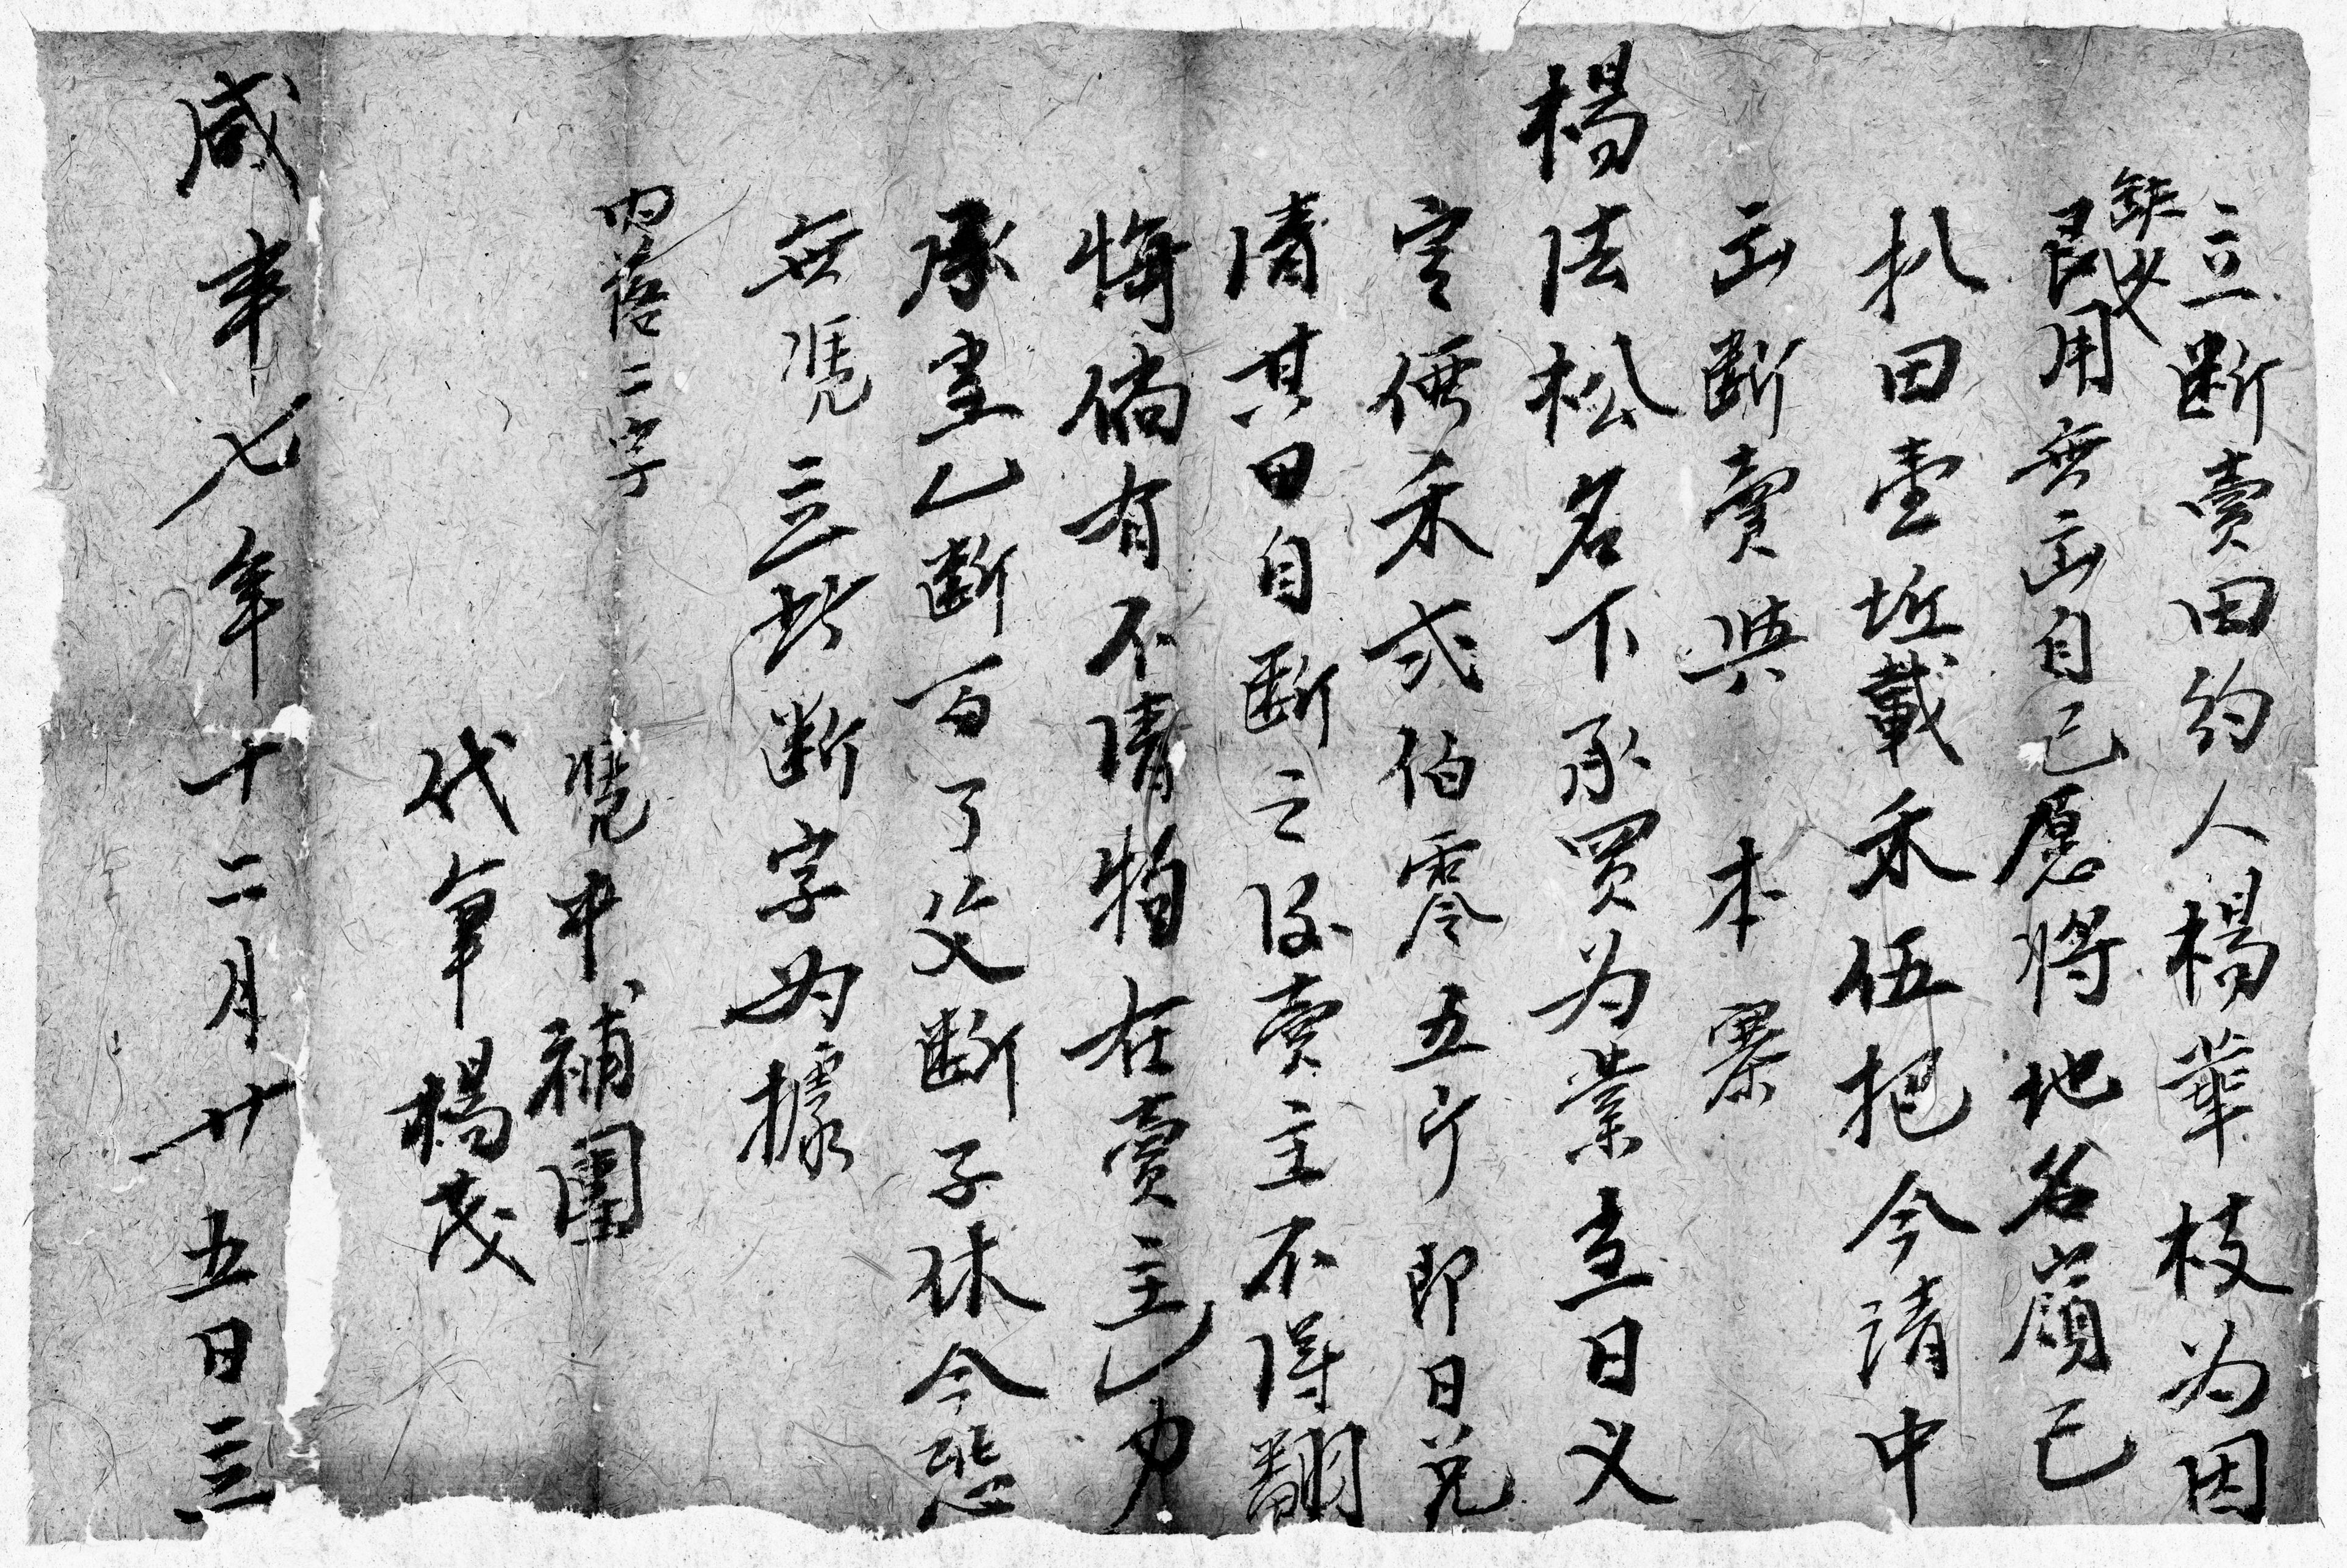 立断賣田約人楊華枝为因
缺少
艮用无出自己愿将地名嶺已
扒田壹坵載禾伍把今請中
出断賣與本寨
楊法松名下承買为業當日义
定價禾弍伯零五斤即日兑
清其田自断之後賣主不得翻
悔倘有不清物在賣主
承當乙断百了父断子休今恐
無凭立此断字为據
内落二字
凭中補團
代筆楊茂
咸丰七年十二月廿五日立